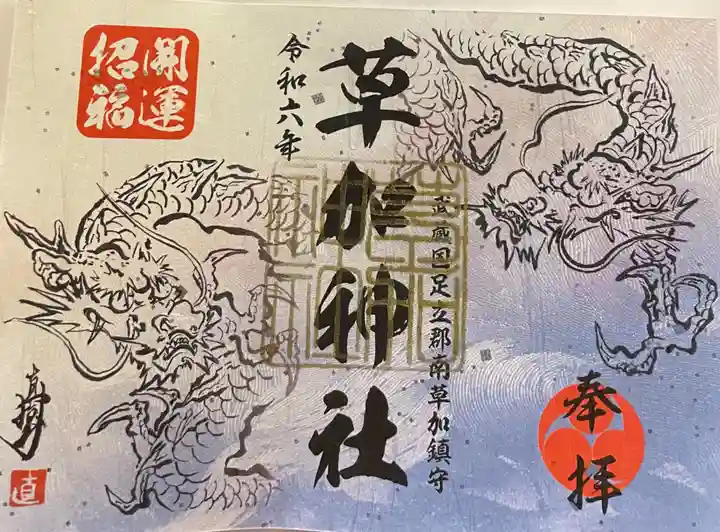 奉拝
武蔵国足立郡南草加鎮守
草加神社
令和六年
開運
招福
直